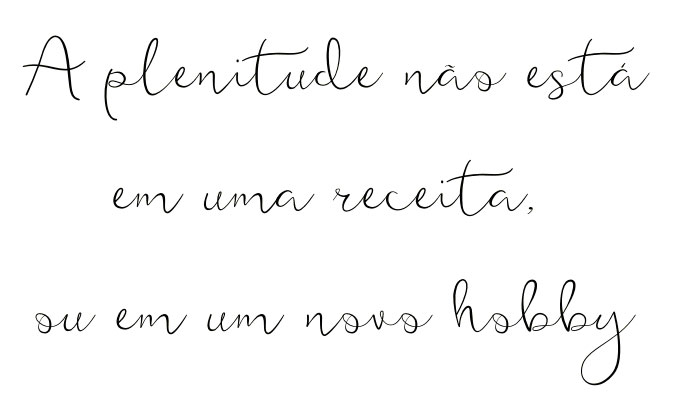 A plenitude não está
em uma receita,
ou em um novo hobby